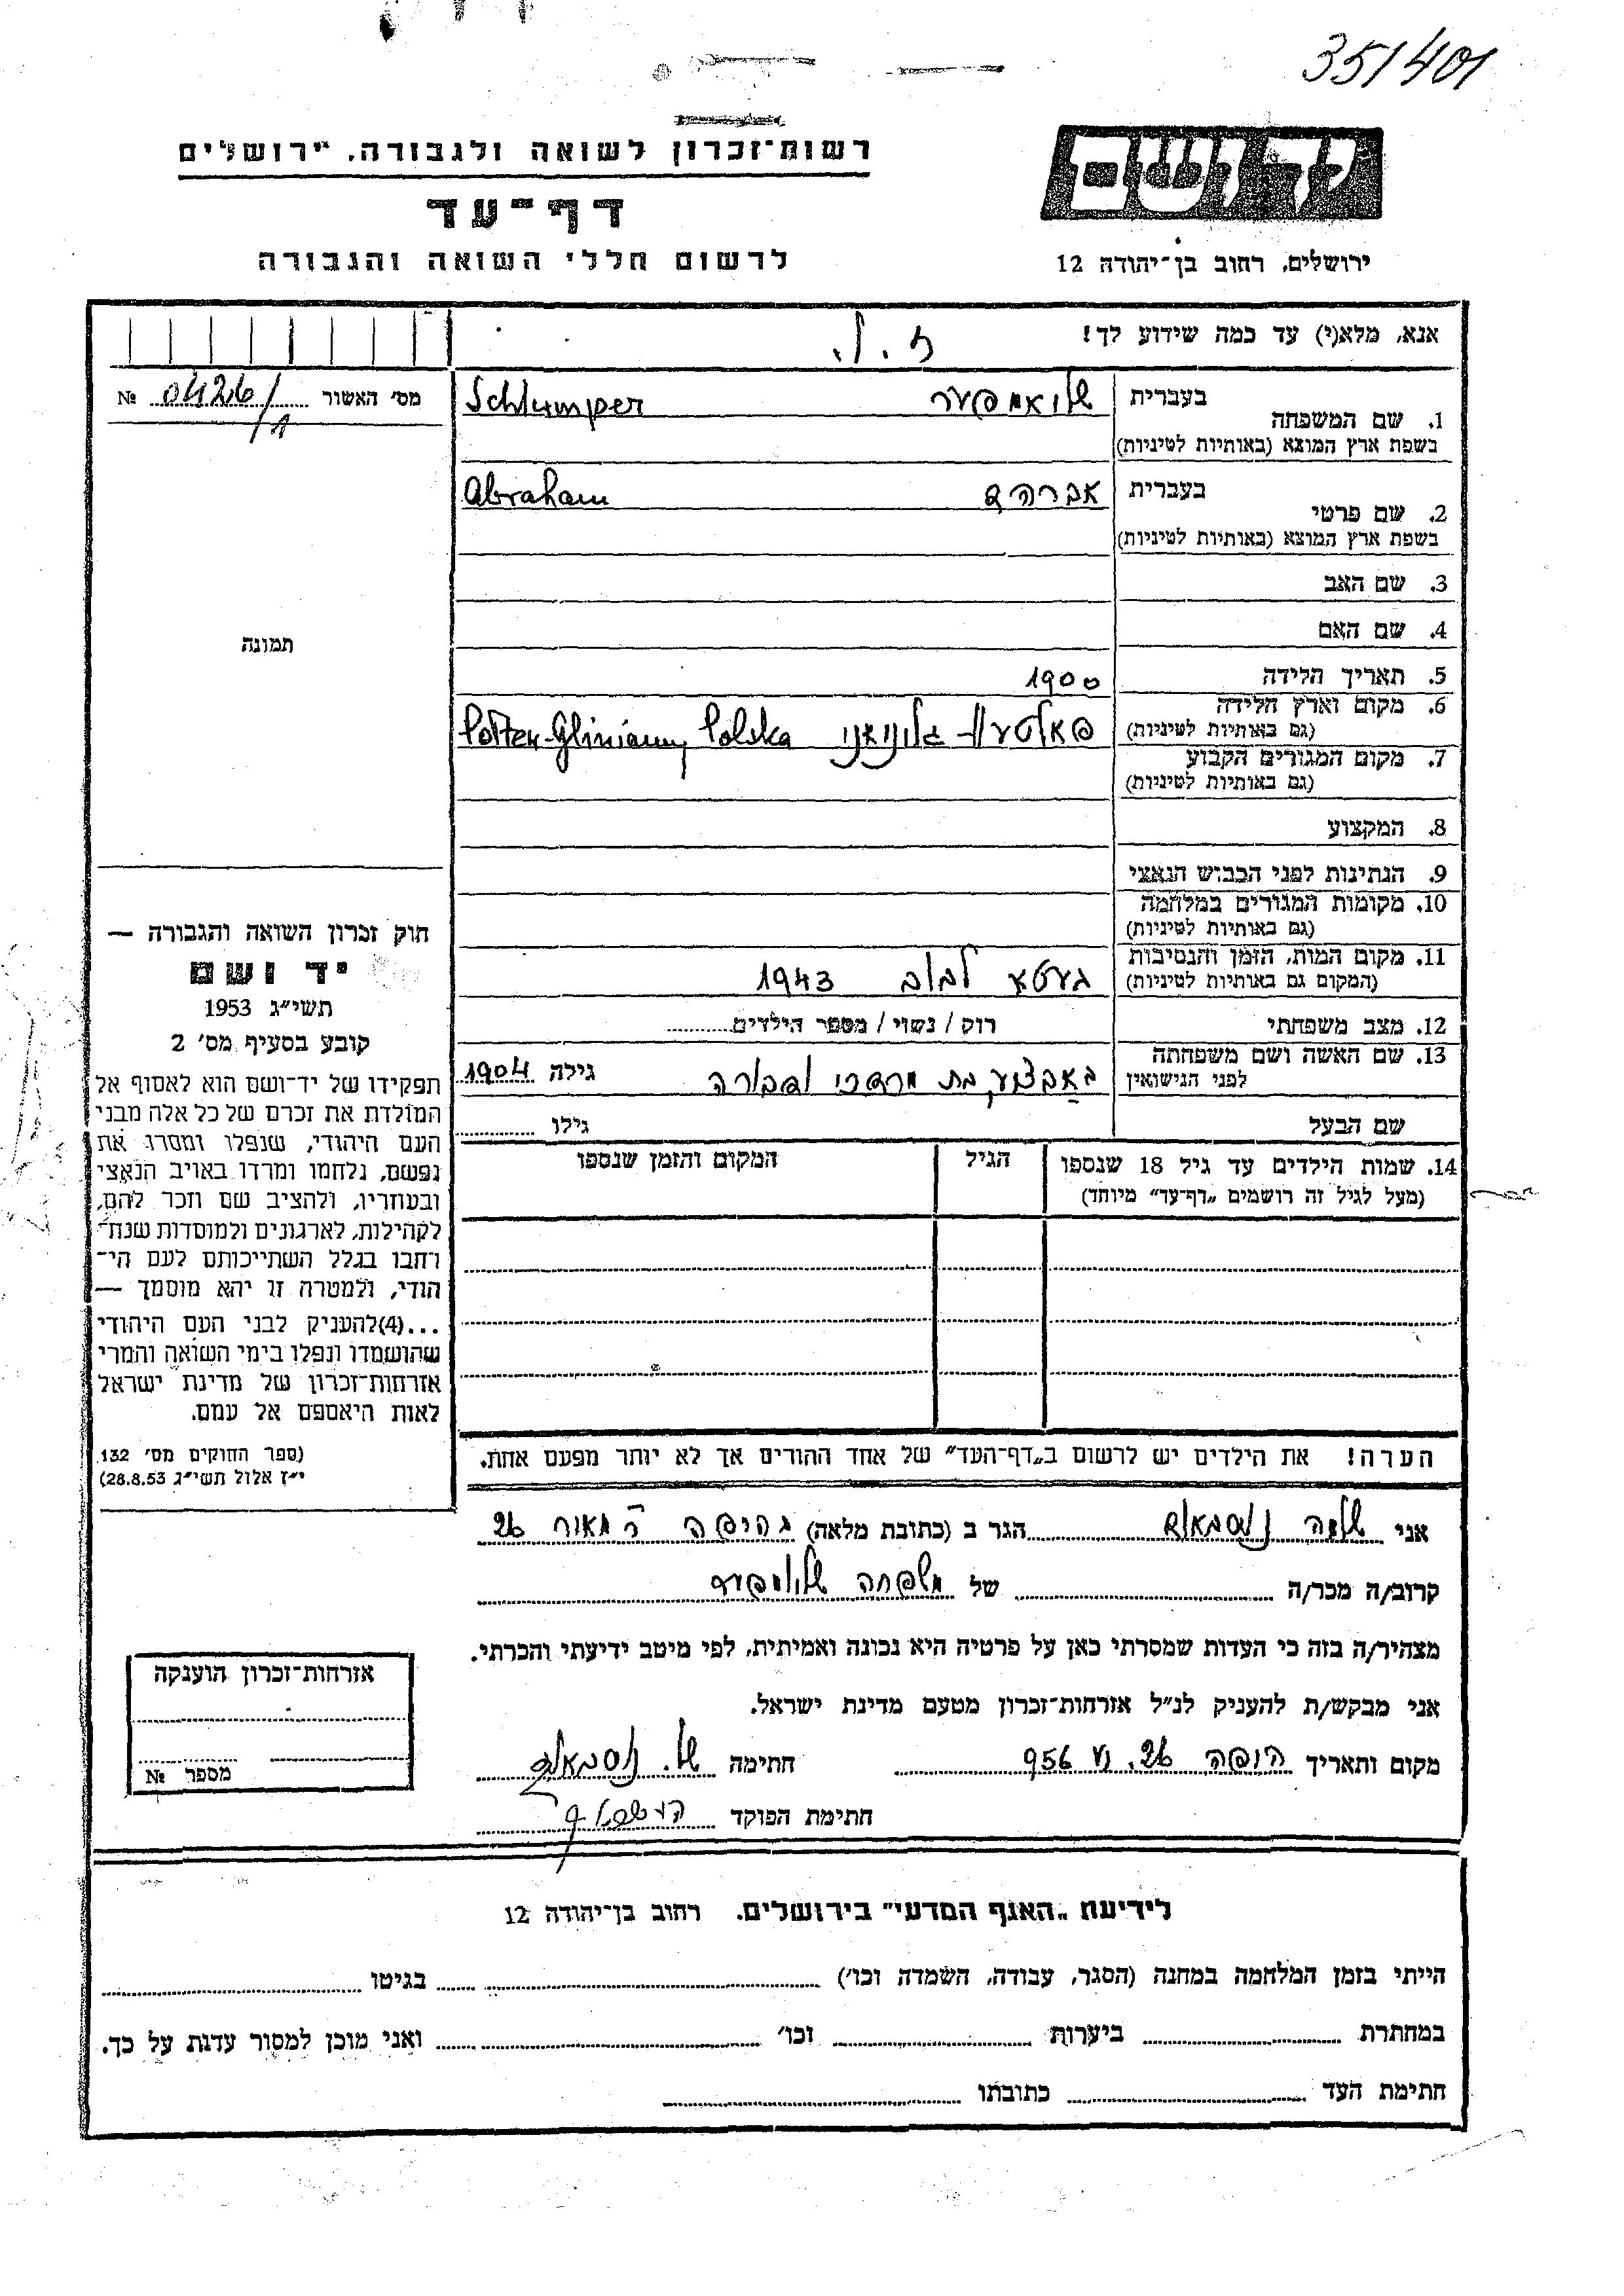 351401
רשות־זכרון לשואה ולגבורה, ירושלים
דף־עד
לרשום חללי השואה והגבורה
ירושלים, רחוב בן־יהודה 12
אנא, מלא(י) עד כמה שידוע לך!
מס׳ האשור № 0426/
בעברית
1. שם המשפחה
בשפת ארץ המוצא (באותיות לטיניות)
שלואמפער Schlumper
בעברית
2. שם פרטי
בשפת ארץ המוצא (באותיות לטיניות)
אברהם Abraham
3. שם האב
4. שם האם
5. תאריך הלידה 1900
6. מקום וארץ הלידה
(גם באותיות לטיניות)
Gliniany Polska
7. מקום המגורים הקבוע
(גם באותיות לטיניות)
8. המקצוע
9. הנתינות לפני הכבוש הנאצי
10. מקומות המגורים במלחמה
(גם באותיות לטיניות)
11. מקום המות, הזמן והנסיבות
(המקום גם באותיות לטיניות)
געטא לבוב 1943
12. מצב משפחתי רוק / נשוי / מספר הילדים
13. שם האשה ושם משפחתה
לפני הנישואין
בת מרדכי ודבורה גילה 1904
שם הבעל גילו
14. שמות הילדים עד גיל 18 שנספו הגיל המקום והזמן שנספו
(מעל לגיל זה רושמים „דף־עד” מיוחד)
הערה! את הילדים יש לרשום ב„דף־העד” של אחד ההורים אך לא יותר מפעם אחת.
תמונה
חוק זכרון השואה והגבורה —
יד ושם
תשי״ג 1953
קובע בסעיף מס׳ 2
תפקידו של יד־ושם הוא לאסוף אל
המולדת את זכרם של כל אלה מבני
העם היהודי, שנפלו ומסרו את
נפשם, נלחמו ומרדו באויב הנאצי
ובעוזריו, ולהציב שם וזכר להם,
לקהילות, לארגונים ולמוסדות שנח־
רחבו בגלל השתייכותם לעם הי־
הודי, ולמטרה זו יהא מוסמך —
...(4) להעניק לבני העם היהודי
שהושמדו ונפלו בימי השואה והמרי
אזרחות־זכרון של מדינת ישראל
לאות היאספם אל עמם.
(ספר החוקים מס׳ 132
י״ז אלול תשי״ג 28.8.53)
אני שלמה נוסבאום הגר ב (כתובת מלאה) בחיפה 26
קרוב/ה מכר/ה של משפחה שלומפער
מצהיר/ה בזה כי העדות שמסרתי כאן על פרטיה היא נכונה ואמיתית, לפי מיטב ידיעתי והכרתי.
אני מבקש/ת להעניק לנ״ל אזרחות־זכרון מטעם מדינת ישראל.
מקום ותאריך חיפה 26. 956 חתימה ש. נוסבאום
חתימת הפוקד
אזרחות־זכרון הוענקה
מספר №
לידיעת „האגף המדעי” בירושלים. רחוב בן־יהודה 12
הייתי בזמן המלחמה במחנה (הסגר, עבודה, השמדה וכו׳) בגיטו
במחתרת ביערות וכו׳ ואני מוכן למסור עדות על כך.
חתימת העד כתובתו